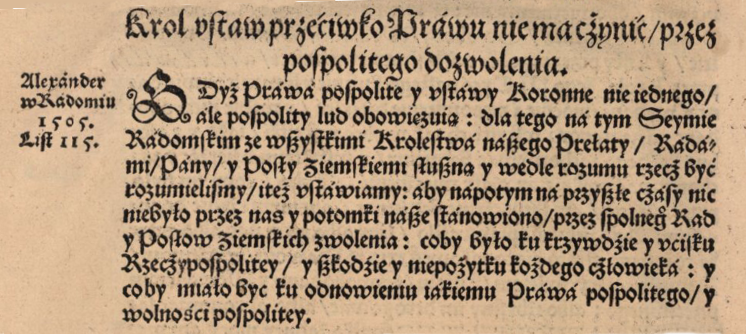 Krol vstaw przećiwko Práwu nie ma cżynić/przez
pospolitego dozwolenia.
Alexánder
w Rádomiu
1505.
List 115.
GDyż Práwá pospolite y vstáwy Koronne nie iednego/
ále pospolity lud obowięzuią : dla tego ná tym Seymie
Rádomskim ze wszystkimi Krolestwá nászego Prełaty/ Rádá-
mi/Pány/ y Posły Ziemskiemi słuszną y wedle rozumu rzecż być
rozumielismy/iteż vstáwiamy: áby nápotym ná przyszłe cżásy nic
niebyło przez nas y potomki násze stánowiono/przez spolneg̊ Rad
y Posłow Ziemskich zwolenia : coby było ku krzywdzie y vćisku
Rzecżypospolitey/ y szkodzie y niepożytku kożdego cżłowieká : y
coby miáło byc ku odnowieniu iákiemu Práwá pospolitego/ y
wolności pospolitey.